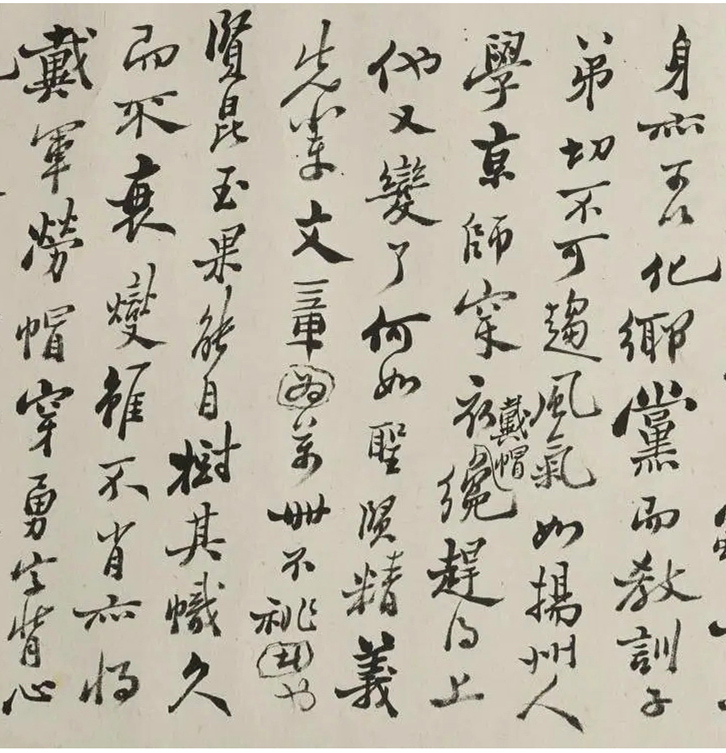 身亦可以化鄉黨而教訓子
弟切不可趨風氣如揚州人
學京師穿衣戴帽纔趕得上
他又變了何如聖賢精義
先輩文章為萬世不祧也
賢昆玉果能自樹其幟久
而不衰燮雖不肖亦將
戴軍勞帽穿勇字背心